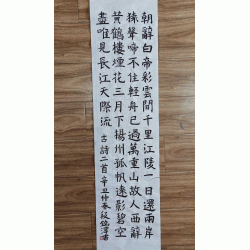 朝辭白帝彩雲間千里江陵一日還兩岸
猿聲啼不住輕舟已過萬重山故人西辭
黃鶴樓煙花三月下揚州孤帆遠影碧空
盡唯見長江天際流 古詩二首辛丑仲春段書